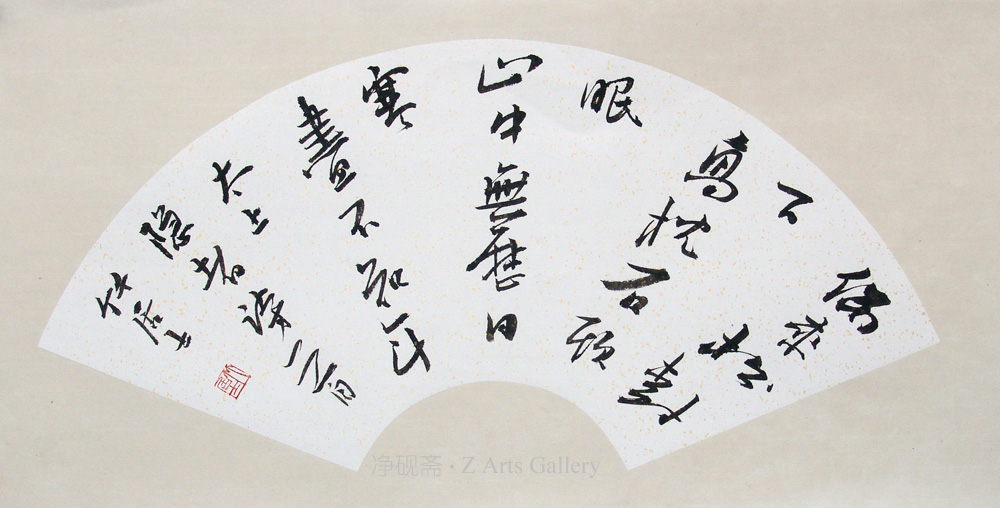 偶來松樹
下
高枕石頭
眠
山中無曆日
寒
盡不知年
太上
隱者詩一首
竹居士
净砚斋 · Z Arts Gallery